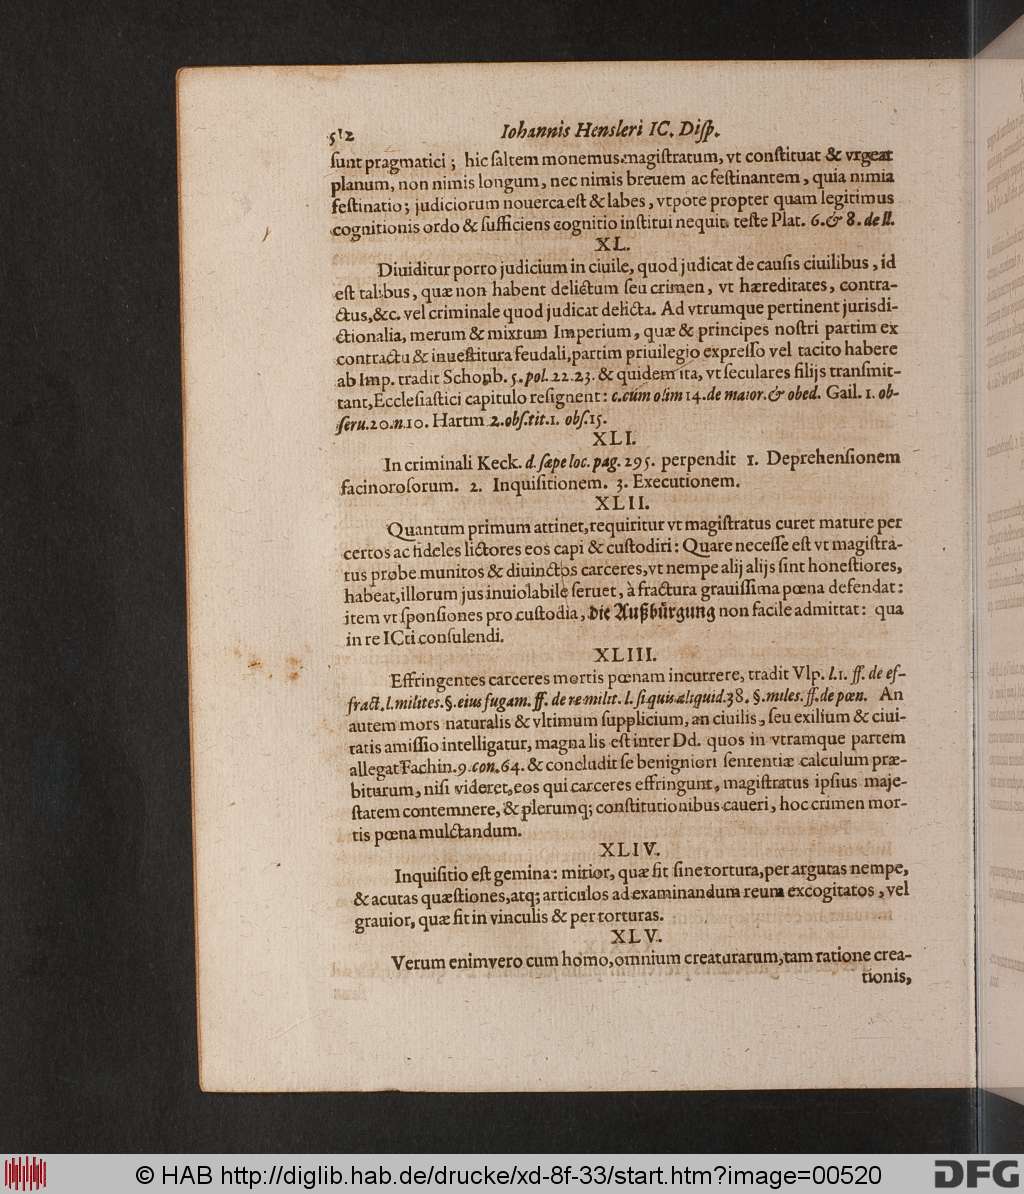 512 Iohannis Hensleri IC. Diſp.
ſunt pragmatici ; hic ſaltem monemus magiſtratum, vt conſtituat & vrgeat
planum, non nimis longum, nec nimis breuem ac feſtinantem, quia nimia
feſtinatio ; judiciorum nouerca eſt & labes, vtpote propter quam legitimus
cognitionis ordo & ſufficiens cognitio inſtitui nequit. teſte Plat. 6. & 8. de ll.
XL.
Diuiditur porro judicium in ciuile, quod judicat de cauſis ciuilibus, id
eſt talibus, quæ non habent delictum ſeu crimen, vt hæreditates, contra-
ctus, &c. vel criminale quod judicat delicta. Ad vtrumque pertinent jurisdi-
ctionalia, merum & mixtum Imperium, quæ & principes noſtri partim ex
contractu & inueſtitura feudali, partim priuilegio expreſſo vel tacito habere
ab Imp. tradit Schonb. 5. pol. 22. 23. & quidem ita, vt ſeculares filijs tranſmit-
tant, Eccleſiaſtici capitulo reſignent : c. cùm olim 14. de maior. & obed. Gail. 1. ob-
ſeru. 20. n. 10. Hartm 2. obſ. tit. 1. obſ. 15.
XLI.
In criminali Keck. d. ſæpe loc. pag. 295. perpendit 1. Deprehenſionem
facinoroſorum. 2. Inquiſitionem. 3. Executionem.
XLII.
Quantum primum attinet, requiritur vt magiſtratus curet mature per
certos ac fideles lictores eos capi & cuſtodiri : Quare neceſſe eſt vt magiſtra-
tus probe munitos & diuinctos carceres, vt nempe alij alijs ſint honeſtiores,
habeat, illorum jus inuiolabile ſeruet, à fractura grauiſſima pœna defendat :
item vt ſponſiones pro cuſtodia, die Außbürgung non facile admittat : qua
in re ICti conſulendi.
XLIII.
Effringentes carceres mortis pœnam incurrere, tradit Vlp. l. 1. ff. de ef-
fract. l. milites. §. eius fugam. ff. de re milit. l. ſi quis aliquid. 38. §. miles. ff. de pœn. An
autem mors naturalis & vltimum ſupplicium, an ciuilis, ſeu exilium & ciui-
tatis amiſſio intelligatur, magna lis eſt inter Dd. quos in vtramque partem
allegat Fachin. 9. con. 64. & concludit ſe benigniori ſententiæ calculum præ-
biturum, niſi videret, eos qui carceres effringunt, magiſtratus ipſius maje-
ſtatem contemnere, & plerumq; conſtitutionibus caueri, hoc crimen mor-
tis pœna mulctandum.
XLIV.
Inquiſitio eſt gemina : mitior, quæ fit ſine tortura, per argutas nempe,
& acutas quæſtiones, atq; articulos ad examinandum reum excogitatos, vel
grauior, quæ fit in vinculis & per torturas.
XLV.
Verum enimvero cum homo, omnium creaturarum, tam ratione crea-
tionis,
© HAB http://diglib.hab.de/drucke/xd-8f-33/start.htm?image=00520
DFG